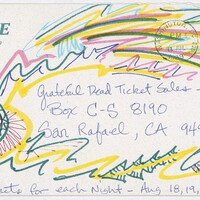 Grateful Dead Ticket Sales -
Box C-S 8190
San Rafael, CA 949
for each Night - Aug 18, 19,